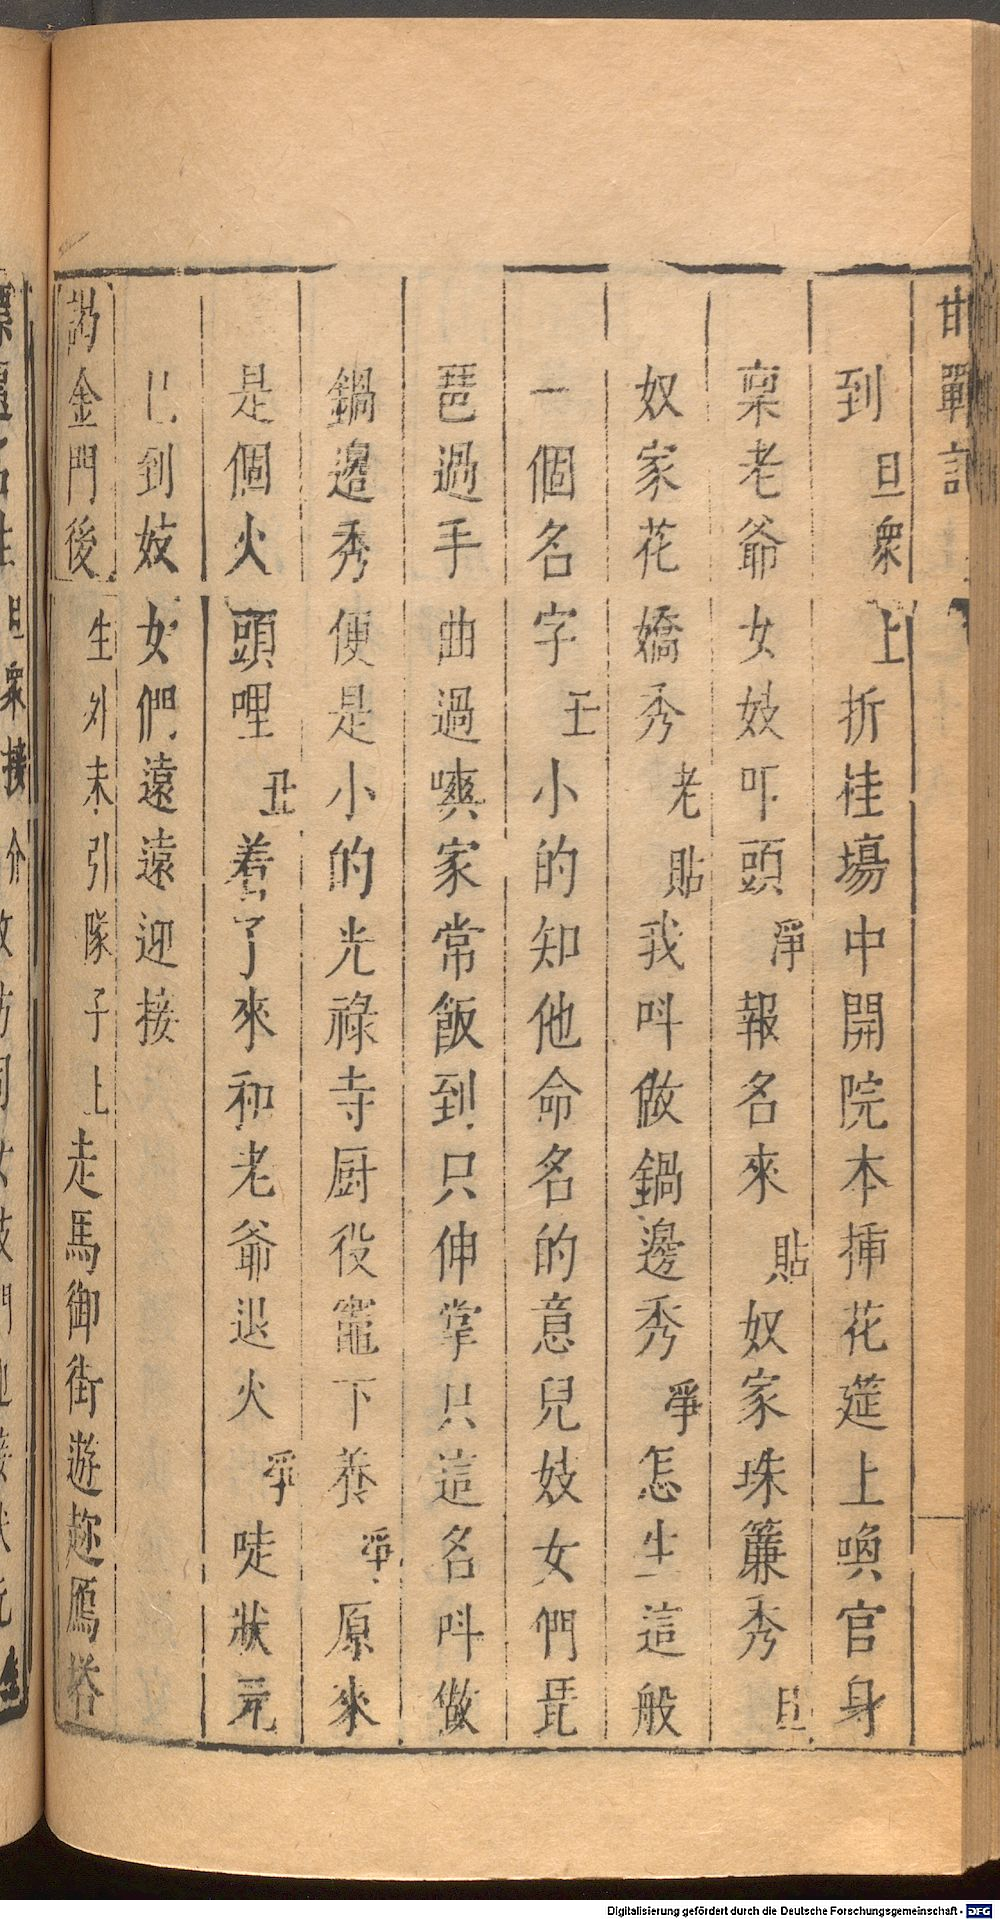 甘鄲記
到旦衆上折桂塲中開院本揷花筵上喚官身
稟老爺女妓叩頭淨報名來貼奴家珠簾秀旦
奴家花嬌秀老貼我呌做鍋邊秀淨怎生這般
一個名字小的知他命名的意兒妓女們琵
琶過手曲過嗓家常飯到只伸掌只這名呌做
鍋邊秀便是小的光祿寺厨役竈下養淨原來
是個火頭哩丑着了來和老爺退火淨唗狀元
已到妓女們遠遠迎接
謁金門後生外末引隊子上走馬御街遊趂鴈塔
Digitalisierung gefördert durch die Deutsche Forschungsgemeinschaft - DFG